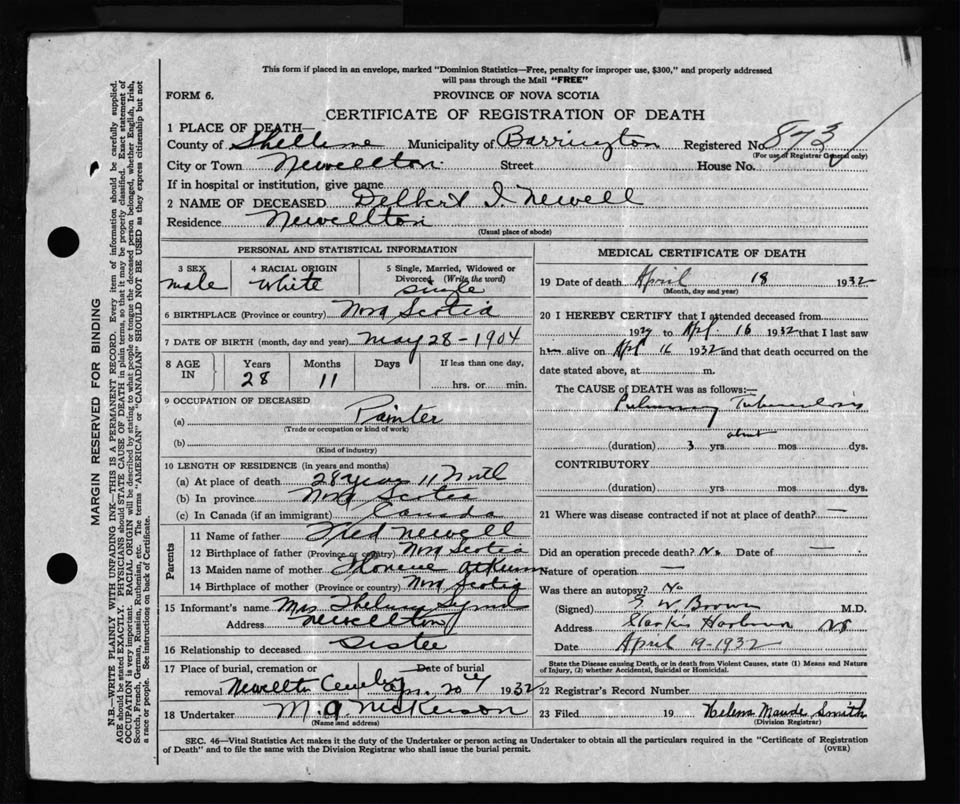 This form if placed in an envelope, marked "Dominion Statistics—Free, penalty for improper use, $300," and properly addressed
will pass through the Mail "FREE"
FORM 6. PROVINCE OF NOVA SCOTIA
CERTIFICATE OF REGISTRATION OF DEATH
1 PLACE OF DEATH—
County of Municipality of Barrington Registered No. 873
(For use of Registrar General only)
City or Town Newellton Street House No.
If in hospital or institution, give name
2 NAME OF DECEASED Delbert I Newell
Residence Newellton
(Usual place of abode)
PERSONAL AND STATISTICAL INFORMATION
3 SEX 4 RACIAL ORIGIN 5 Single, Married, Widowed or
Divorced (Write the word)
male white single
6 BIRTHPLACE (Province or country) Nova Scotia
7 DATE OF BIRTH (month, day and year) May 28 - 1904
8 AGE IN Years Months Days If less than one day,
28 11 hrs. or min.
9 OCCUPATION OF DECEASED
(a) Painter
(Trade or occupation or kind of work)
(b)
(Kind of industry)
10 LENGTH OF RESIDENCE (in years and months)
(a) At place of death 28 years 11 Month
(b) In province Nova Scotia
(c) In Canada (if an immigrant) Canada
Parents
11 Name of father Fred Newell
12 Birthplace of father (Province or country) Nova Scotia
13 Maiden name of mother
14 Birthplace of mother (Province or country) Nova Scotia
15 Informant's name Mrs Thelma
Address Newellton
16 Relationship to deceased Sister
17 Place of burial, cremation or Date of burial
removal 20 1932
18 Undertaker
(Name and address)
MEDICAL CERTIFICATE OF DEATH
19 Date of death April 18 1932
(Month, day and year)
20 I HEREBY CERTIFY that I attended deceased from
19 to Apl. 16 1932 that I last saw
h alive on Apl 16 1932 and that death occurred on the
date stated above, at m.
The CAUSE OF DEATH was as follows:—
Pulmonary Tuberculosis
about
(duration) 3 yrs. mos. dys.
CONTRIBUTORY
(duration) yrs. mos. dys.
21 Where was disease contracted if not at place of death? —
Did an operation precede death? No Date of —
Nature of operation —
Was there an autopsy? No
(Signed) Brown M.D.
Address NS
Date April 19-1932
State the Disease causing Death, or in death from Violent Causes, state (1) Means and Nature
of Injury, (2) whether Accidental, Suicidal or Homicidal.
22 Registrar's Record Number
23 Filed 19 Helena Maude Smith
(Division Registrar)
SEC. 46—Vital Statistics Act makes it the duty of the Undertaker or person acting as Undertaker to obtain all the particulars required in the "Certificate of Registration
of Death" and to file the same with the Division Registrar who shall issue the burial permit.
(OVER)
MARGIN RESERVED FOR BINDING
N.B.—WRITE PLAINLY WITH UNFADING INK—THIS IS A PERMANENT RECORD. Every item of information should be carefully supplied.
AGE should be stated EXACTLY. PHYSICIANS should STATE CAUSE OF DEATH in plain terms, so that it may be properly classified. Exact statement of
OCCUPATION is very important. RACIAL ORIGIN will be described by stating to what people or tongue the deceased person belonged, whether English, Irish,
Scotch, French, German, Russian, Ruthenian, etc. The terms "AMERICAN" or "CANADIAN" SHOULD NOT BE USED as they express citizenship but not
a race or people. See instructions on back of Certificate.